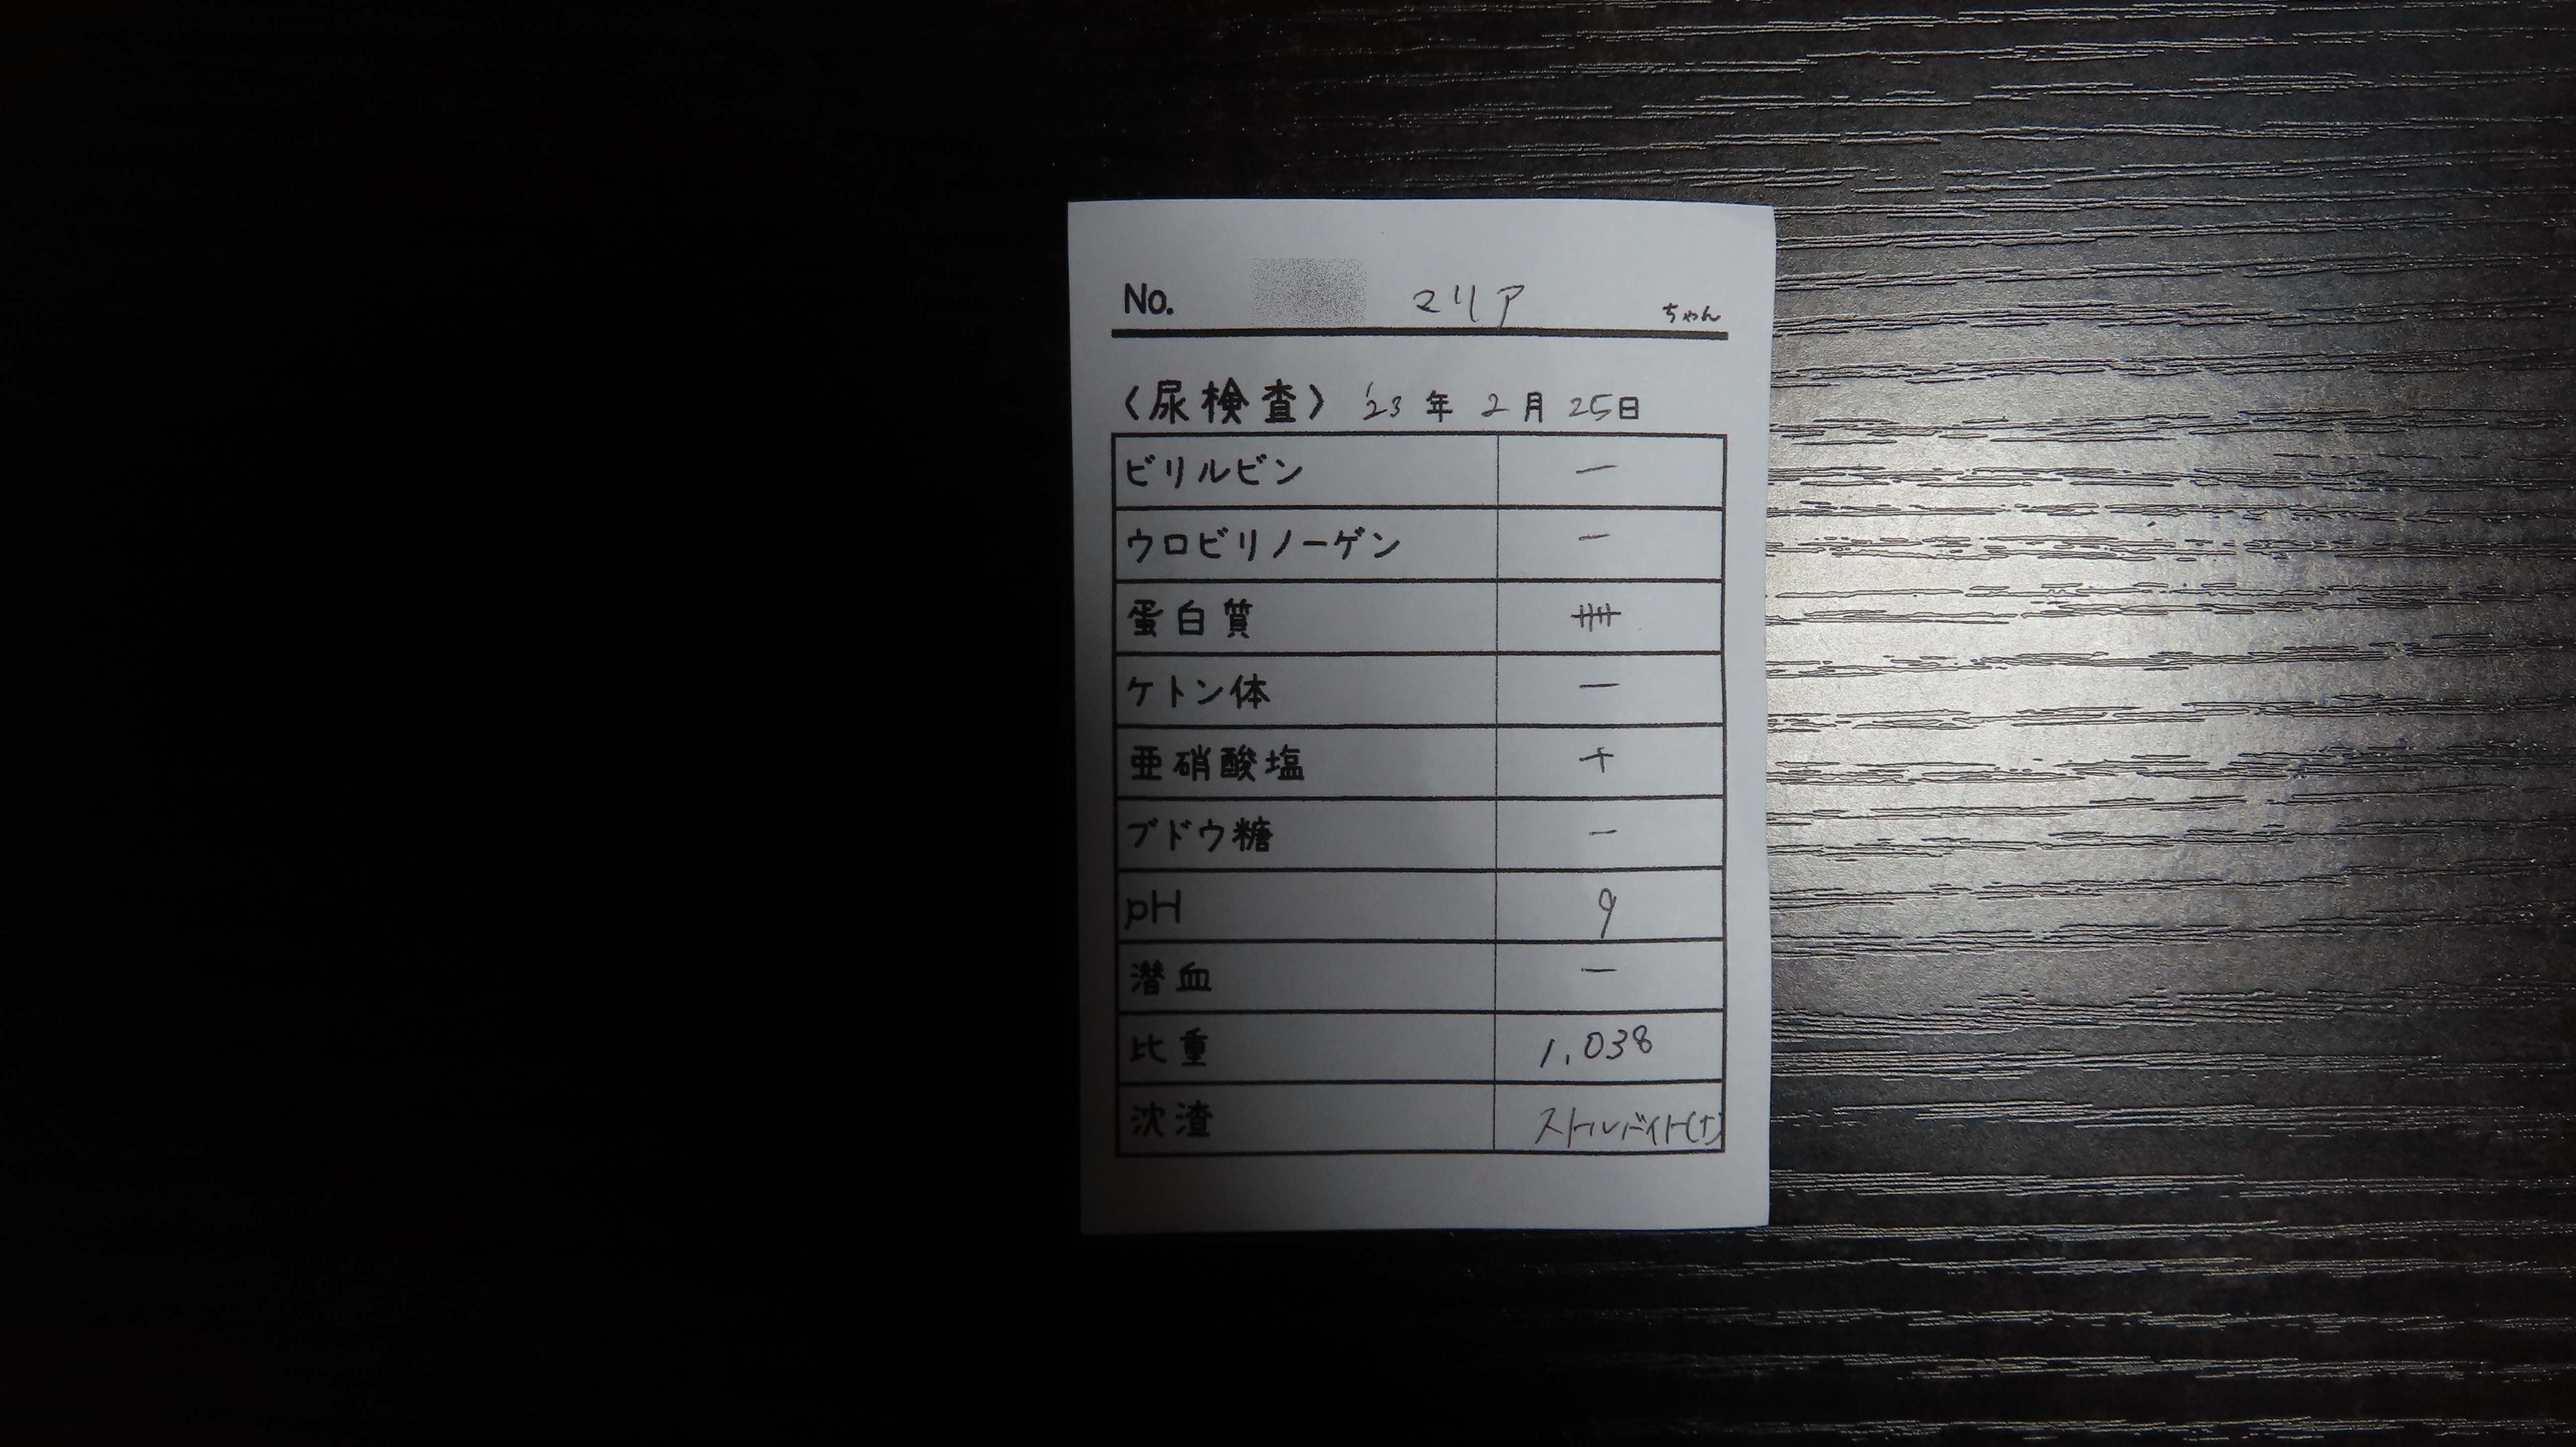 No. マリア ちゃん
〈尿検査〉 '23年 2月 25日
ビリルビン －
ウロビリノーゲン －
蛋白質 卌
ケトン体 －
亜硝酸塩 ＋
ブドウ糖 －
pH 9
潜血 －
比重 1,038
沈渣 ストルバイト(+)